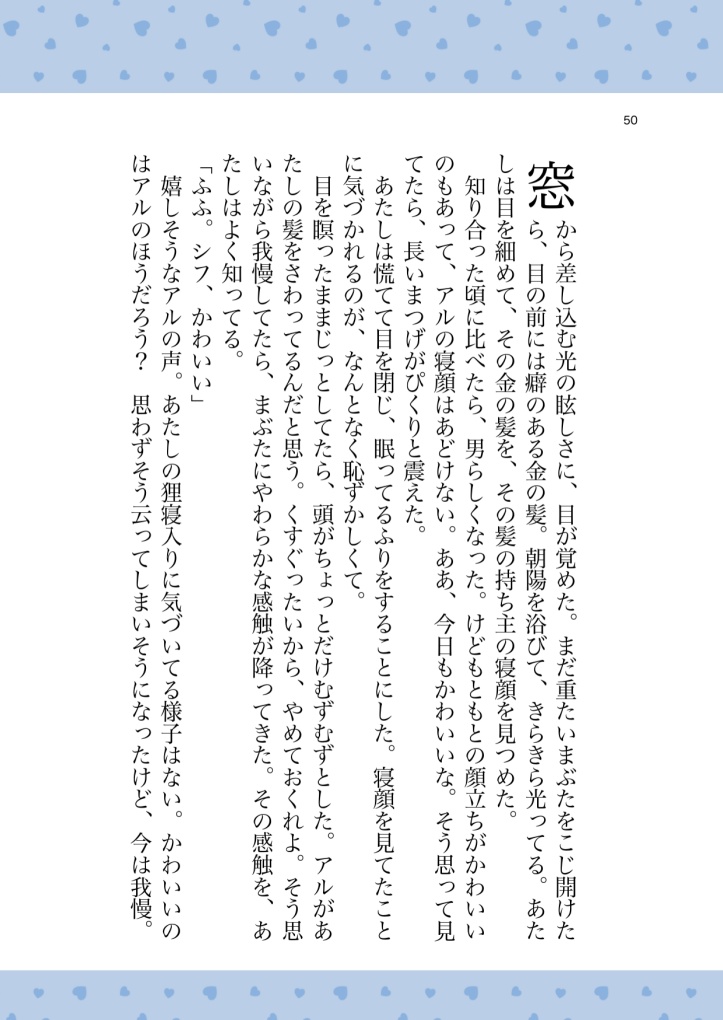 50
窓から差し込む光の眩しさに、目が覚めた。まだ重たいまぶたをこじ開けた
ら、目の前には癖のある金の髪。朝陽を浴びて、きらきら光ってる。あた
しは目を細めて、その金の髪を、その髪の持ち主の寝顔を見つめた。
知り合った頃に比べたら、男らしくなった。けどもともとの顔立ちがかわいい
のもあって、アルの寝顔はあどけない。ああ、今日もかわいいな。そう思って見
てたら、長いまつげがぴくりと震えた。
あたしは慌てて目を閉じ、眠ってるふりをすることにした。寝顔を見てたこと
に気づかれるのが、なんとなく恥ずかしくて。
目を瞑ったままじっとしてたら、頭がちょっとだけむずむずとした。アルがあ
たしの髪をさわってるんだと思う。くすぐったいから、やめておくれよ。そう思
いながら我慢してたら、まぶたにやわらかな感触が降ってきた。その感触を、あ
たしはよく知ってる。
「ふふ。シフ、かわいい」
嬉しそうなアルの声。あたしの狸寝入りに気づいてる様子はない。かわいいの
はアルのほうだろう？　思わずそう云ってしまいそうになったけど、今は我慢。